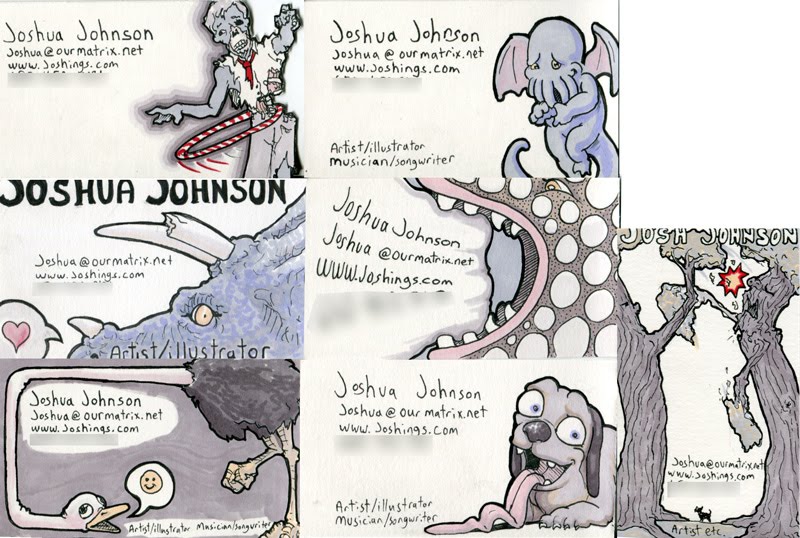 Joshua Johnson
Joshua@ourmatrix.net
www.Joshings.com
Joshua Johnson
Joshua@ourmatrix.net
www.Joshings.com
Artist/illustrator
musician/songwriter
JOSHUA JOHNSON
Joshua@ourmatrix.net
www.Joshings.com
Artist/illustrator
Joshua Johnson
Joshua @ourmatrix.net
WWW.Joshings.com
JOSH JOHNSON
Joshua@ourmatrix.net
www.Joshings.com
Artist etc.
Joshua Johnson
Joshua@ourmatrix.net
www.Joshings.com
Artist/illustrator Musician/songwriter
Joshua Johnson
Joshua@ourmatrix.net
www.Joshings.com
Artist/illustrator
musician/songwriter